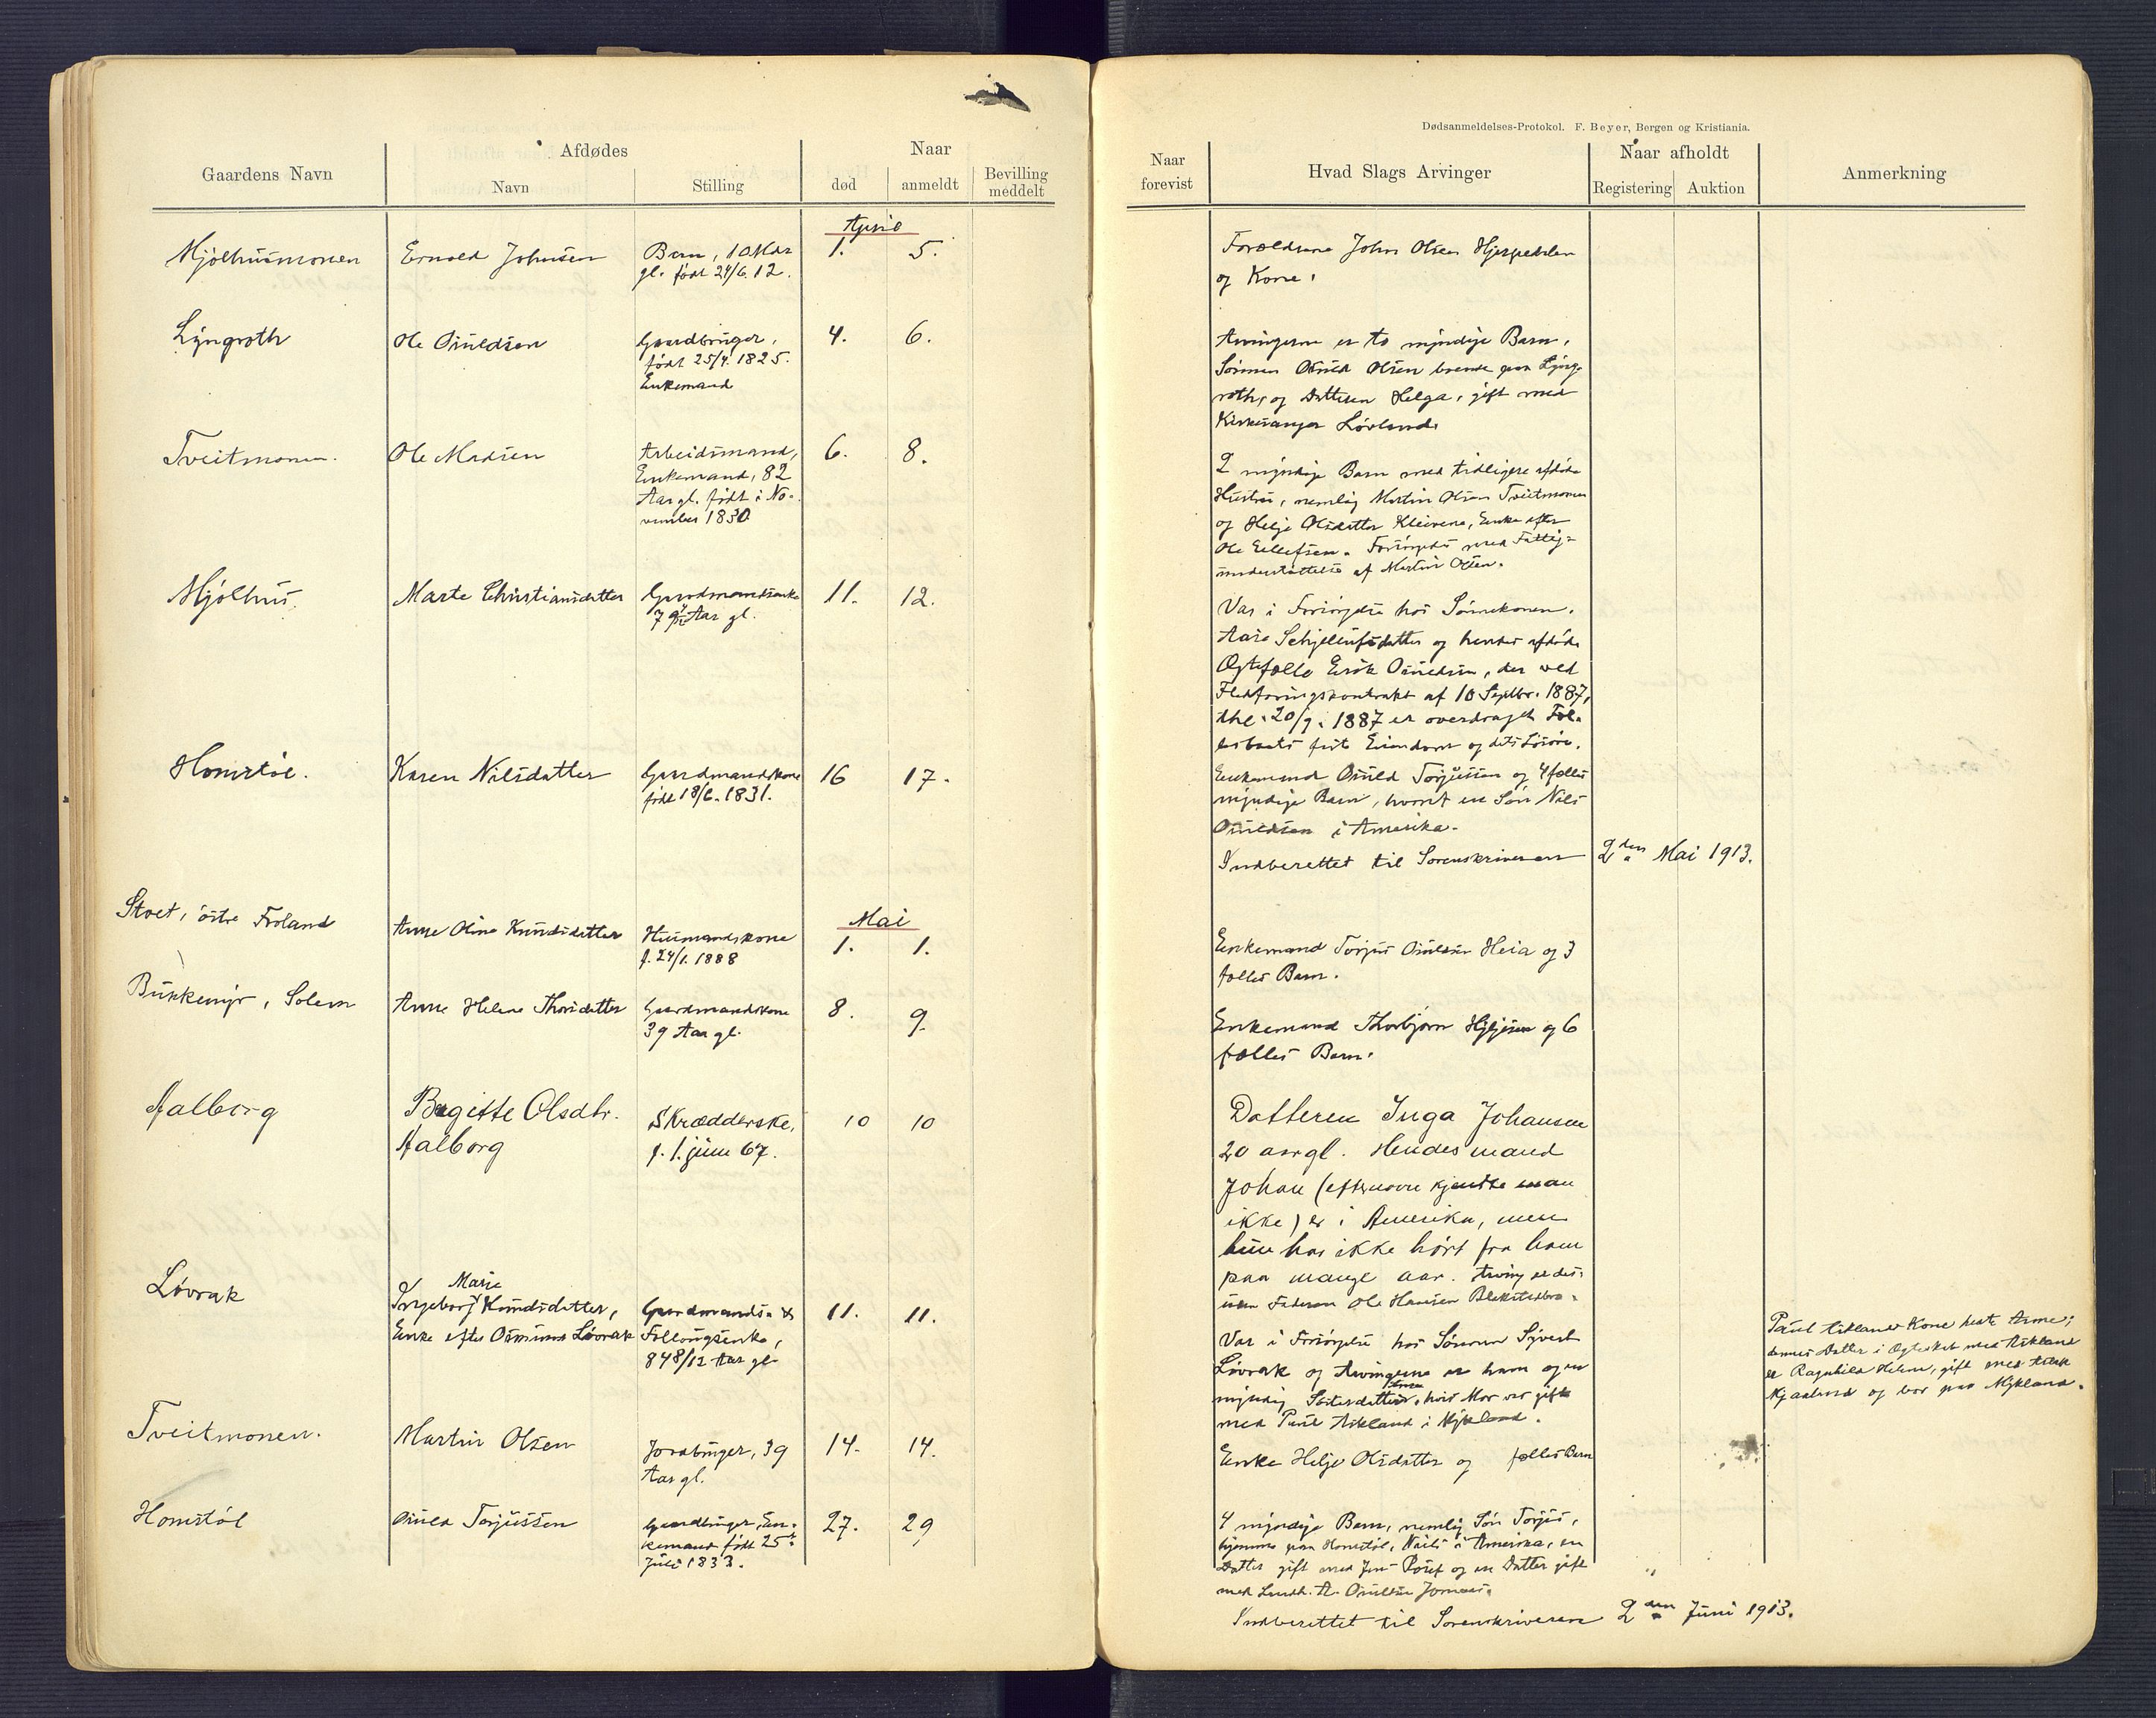 Gaardens Navn
Afdødes
Navn
Stilling
Naar
død
anmeldt
Bevilling
meddelt
April
Mjølhusmonen
Ernold Johnsen
Barn, 10 Mdr
gl. født 24/6. 12.
1.
5.
Lyngroth
Ole Osuldsen
Gaardbruger,
født 25/4. 1825.
Enkemand
4.
6.
Tveitmonen.
Ole Madsen
Arbeidsmand,
Enkemand, 82
Aar gl. født i No-
vember 1830
6.
8.
Mjølhus.
Marte Christiansdatter
Gaardmandsenke
Aar gl.
11.
12.
Homstøl.
Karen Nilsdatter
Gaardmandskone
født 18/6. 1831.
16
17.
Mai
Stoet, østre Froland
Anne Oline Knudsdatter
Husmandskone
f. 24/1. 1888
1.
1.
Bukkemyr, Solem
Anne Helene Thorsdatter
Gaardmandskone
39 Aar gl.
8.
9.
Aalborg
Birgitte Olsdtr.
Aalborg
Skrædderske,
f. 1. juni 67.
10
10
Løvrak
Marie
Ingeborg Knudsdatter,
Enke efter Osmund Løvrak
Gaardmands- &
Føllougsenke,
84 8/12 Aar gl.
11.
11.
Tveitmonen.
Martin Olsen
Jordbruger, 39
Aar gl.
14.
14.
Homstøl
Osuld Torjussen
Gaardbruger, En-
kemand født 25
Juli 1833.
27.
29
Dødsanmeldelses-Protokol. F. Beyer, Bergen og Kristiania.
Naar
forevist
Hvad Slags Arvinger
Naar afholdt
Registering
Auktion
Anmerkning
Forældrene John Olsen
og Kone.
Arvingerne er to myndige Barn,
Sønnen Osuld Olsen boende paa Lyng-
roth, og Datteren Helga, gift med
Kirkesanger Løvland.
2 myndige Barn med tidligere afdøde
Hustru, nemlig Martin Olsen Tveitmonen
og Helje Olsdatter Kleivene, Enke efter
Ole Eellefsen. Forsørgedes med Fattig-
understøttelse af Martin Olsen.
Var i Forsørgelse hos Sønnekonen,
Aase Schjellufsdatter og hendes afdøde
Ægtefælle Erik Osuldsen, der ved
Fledføringskontrakt af 10 Septbr. 1887,
thl. 20/9. 1887 er overdraget Føl-
Eiendom og dets Løsøre.
Enkemand Osuld Torjussen og 4 fælles
myndige Barn, hvoraf en Søn Nils
Osuldsen i Amerika.
Indberettet til Sorenskriveren 2den Mai 1913.
Enkemand Torjus Osuldsen Heia og 3
fælles Barn.
Enkemand Thorbjørn og 6
fælles Barn.
Datteren Inga Johansen
20 aar gl. Hendes mand
Johan (efternavn kjendte man
ikke) er i Amerika, men
hun har ikke hørt fra ham
paa mange aar. Arving er des-
uden Faderen Ole Hansen
Var i Forsørgelse hos Sønnen Syvert
Løvrak og Arvingerne er ham og en
Anne
myndig Søsterdatter, hvis Mor var gift
med Paul Askland i Mykland.
Paul Asklands Kone heate Anne;
dennes Datter i Ægteskab med Askland
er Ragnhild Helene, gift med Aslak
Mjaaland og bor paa Mykland.
Enke Helje Olsdatter og fælles Barn
4 myndige Barn, nemlig Søn Torjus,
hjemme paa Homstøl, Nils i Amerika, en
Datter gift med Jens og en Datter gift
med A. Osuldsen
Indberettet til Sorenskriveren 2den Juni 1913.